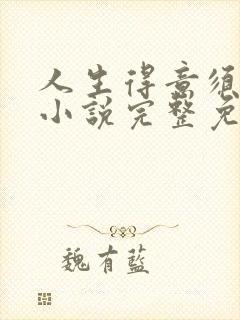 人生得意须
小説完整免
魏有藍